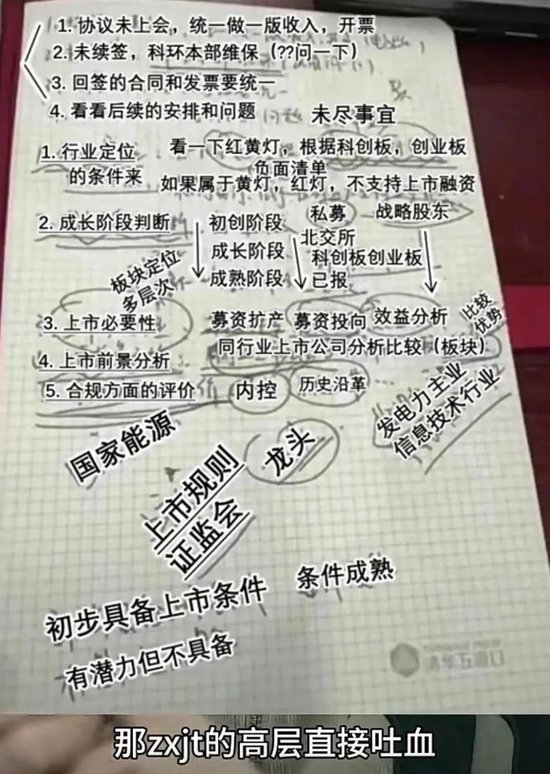 1. 协议未上会，统一做一版收入，开票
2.未续签，科环本部维保（??问一下）
3. 回签的合同和发票要统一
4. 看看后续的安排和问题
未尽事宜
1. 行业定位的条件来
看一下红黄灯，根据科创板，创业板
负面清单
如果属于黄灯，红灯，不支持上市融资
2. 成长阶段判断
初创阶段
私募
战略股东
成长阶段
北交所
科创板创业板
成熟阶段
已报
板块定位
多层次
3. 上市必要性
募资扩产
募资投向
效益分析
比较优势
4. 上市前景分析
同行业上市公司分析比较（板块）
5. 合规方面的评价
内控
历史沿革
发电力主业
信息技术行业
国家能源
龙头
上市规则
证监会
初步具备上市条件
条件成熟
有潜力但不具备
清华五道口
那zxjt的高层直接吐血